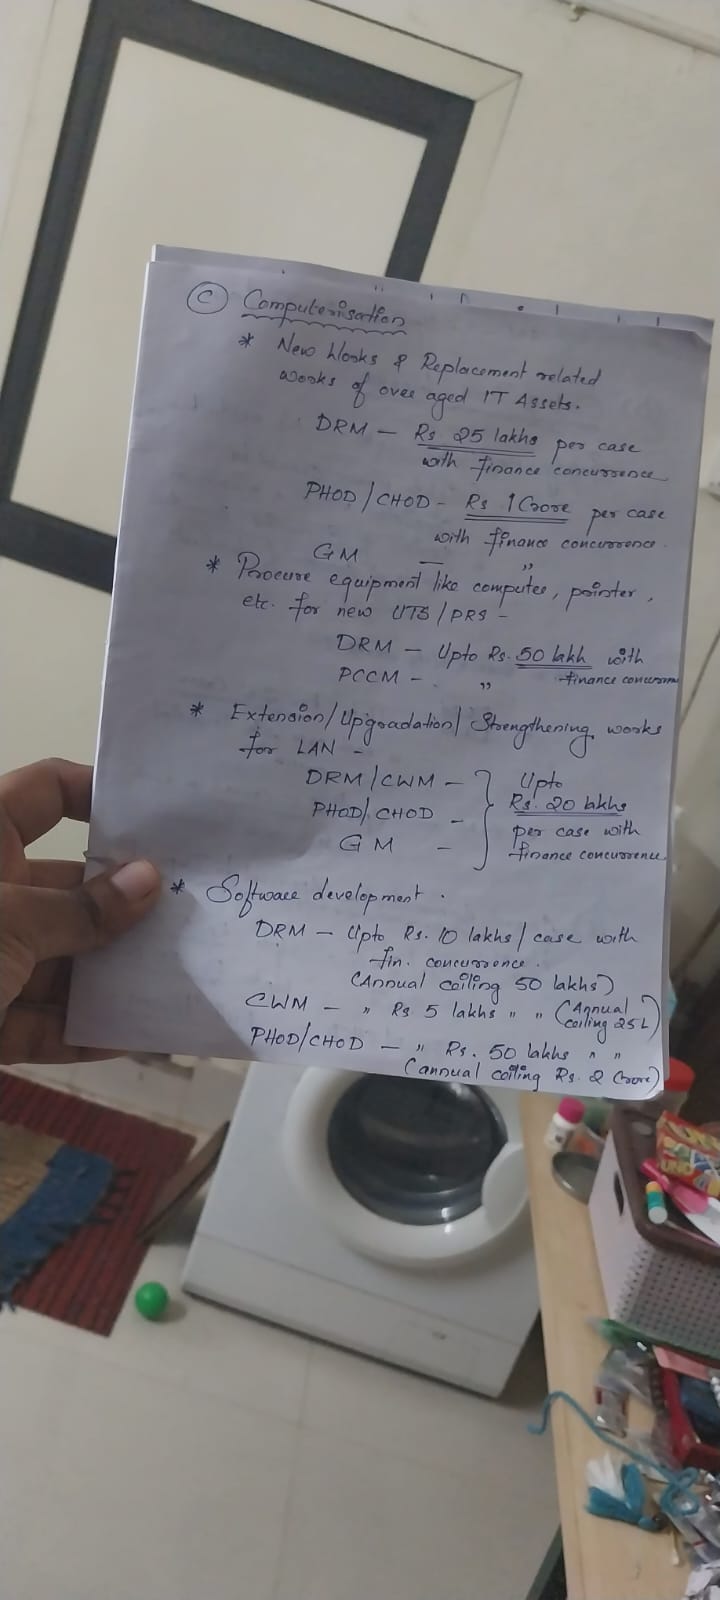 (C) Computerisation
* New Works & Replacement related
works of over aged IT Assets.
DRM — Rs. 25 lakhs per case
with finance concurrence
PHOD/CHOD - Rs 1 Crore per case
with finance concurrence.
GM — "
* Procure equipment like computer, printer,
etc. for new UTS/PRS -
DRM — Upto Rs. 50 lakh with
PCCM - " finance concurren
* Extension/Upgradation/Strengthening works
for LAN -
DRM/CWM - } Upto
PHOD/CHOD - Rs. 20 lakhs
GM - per case with
finance concurrence
* Software development.
DRM — Upto Rs. 10 lakhs/case with
fin. concurrence.
(Annual ceiling 50 lakhs)
CWM — " Rs 5 lakhs " " (Annual
ceiling 25L)
PHOD/CHOD — " Rs. 50 lakhs " "
(annual ceiling Rs. 2 Crore)
UNO